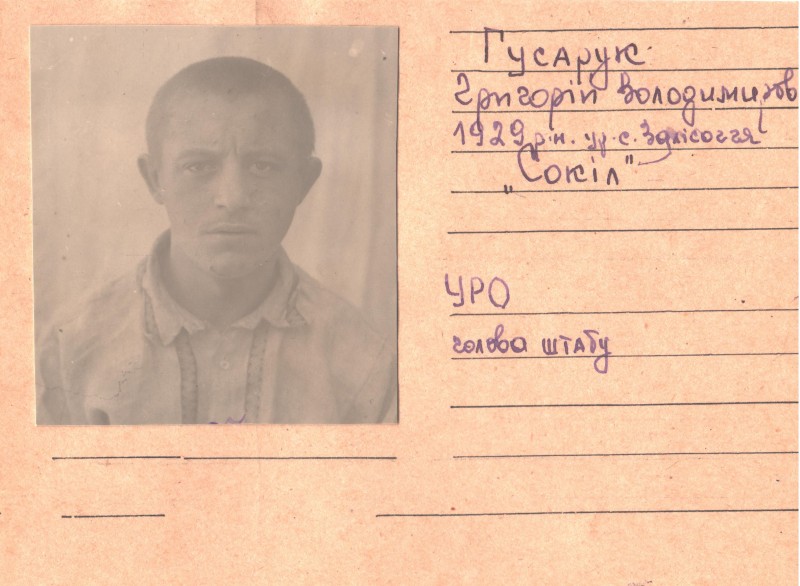 Гусарук
Григорій Володимиров
1929 р.н. ур. с. Залісоччя
"Сокіл"
УРО
голова штабу